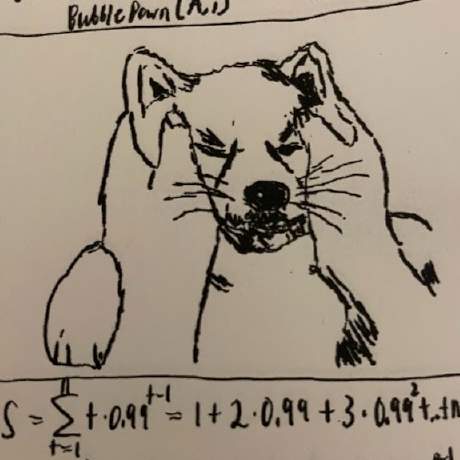 BubbleDown(A,i)
S = n∑t=1 t·0.99^t-1 = 1+2·0.99+3·0.99²+..+n